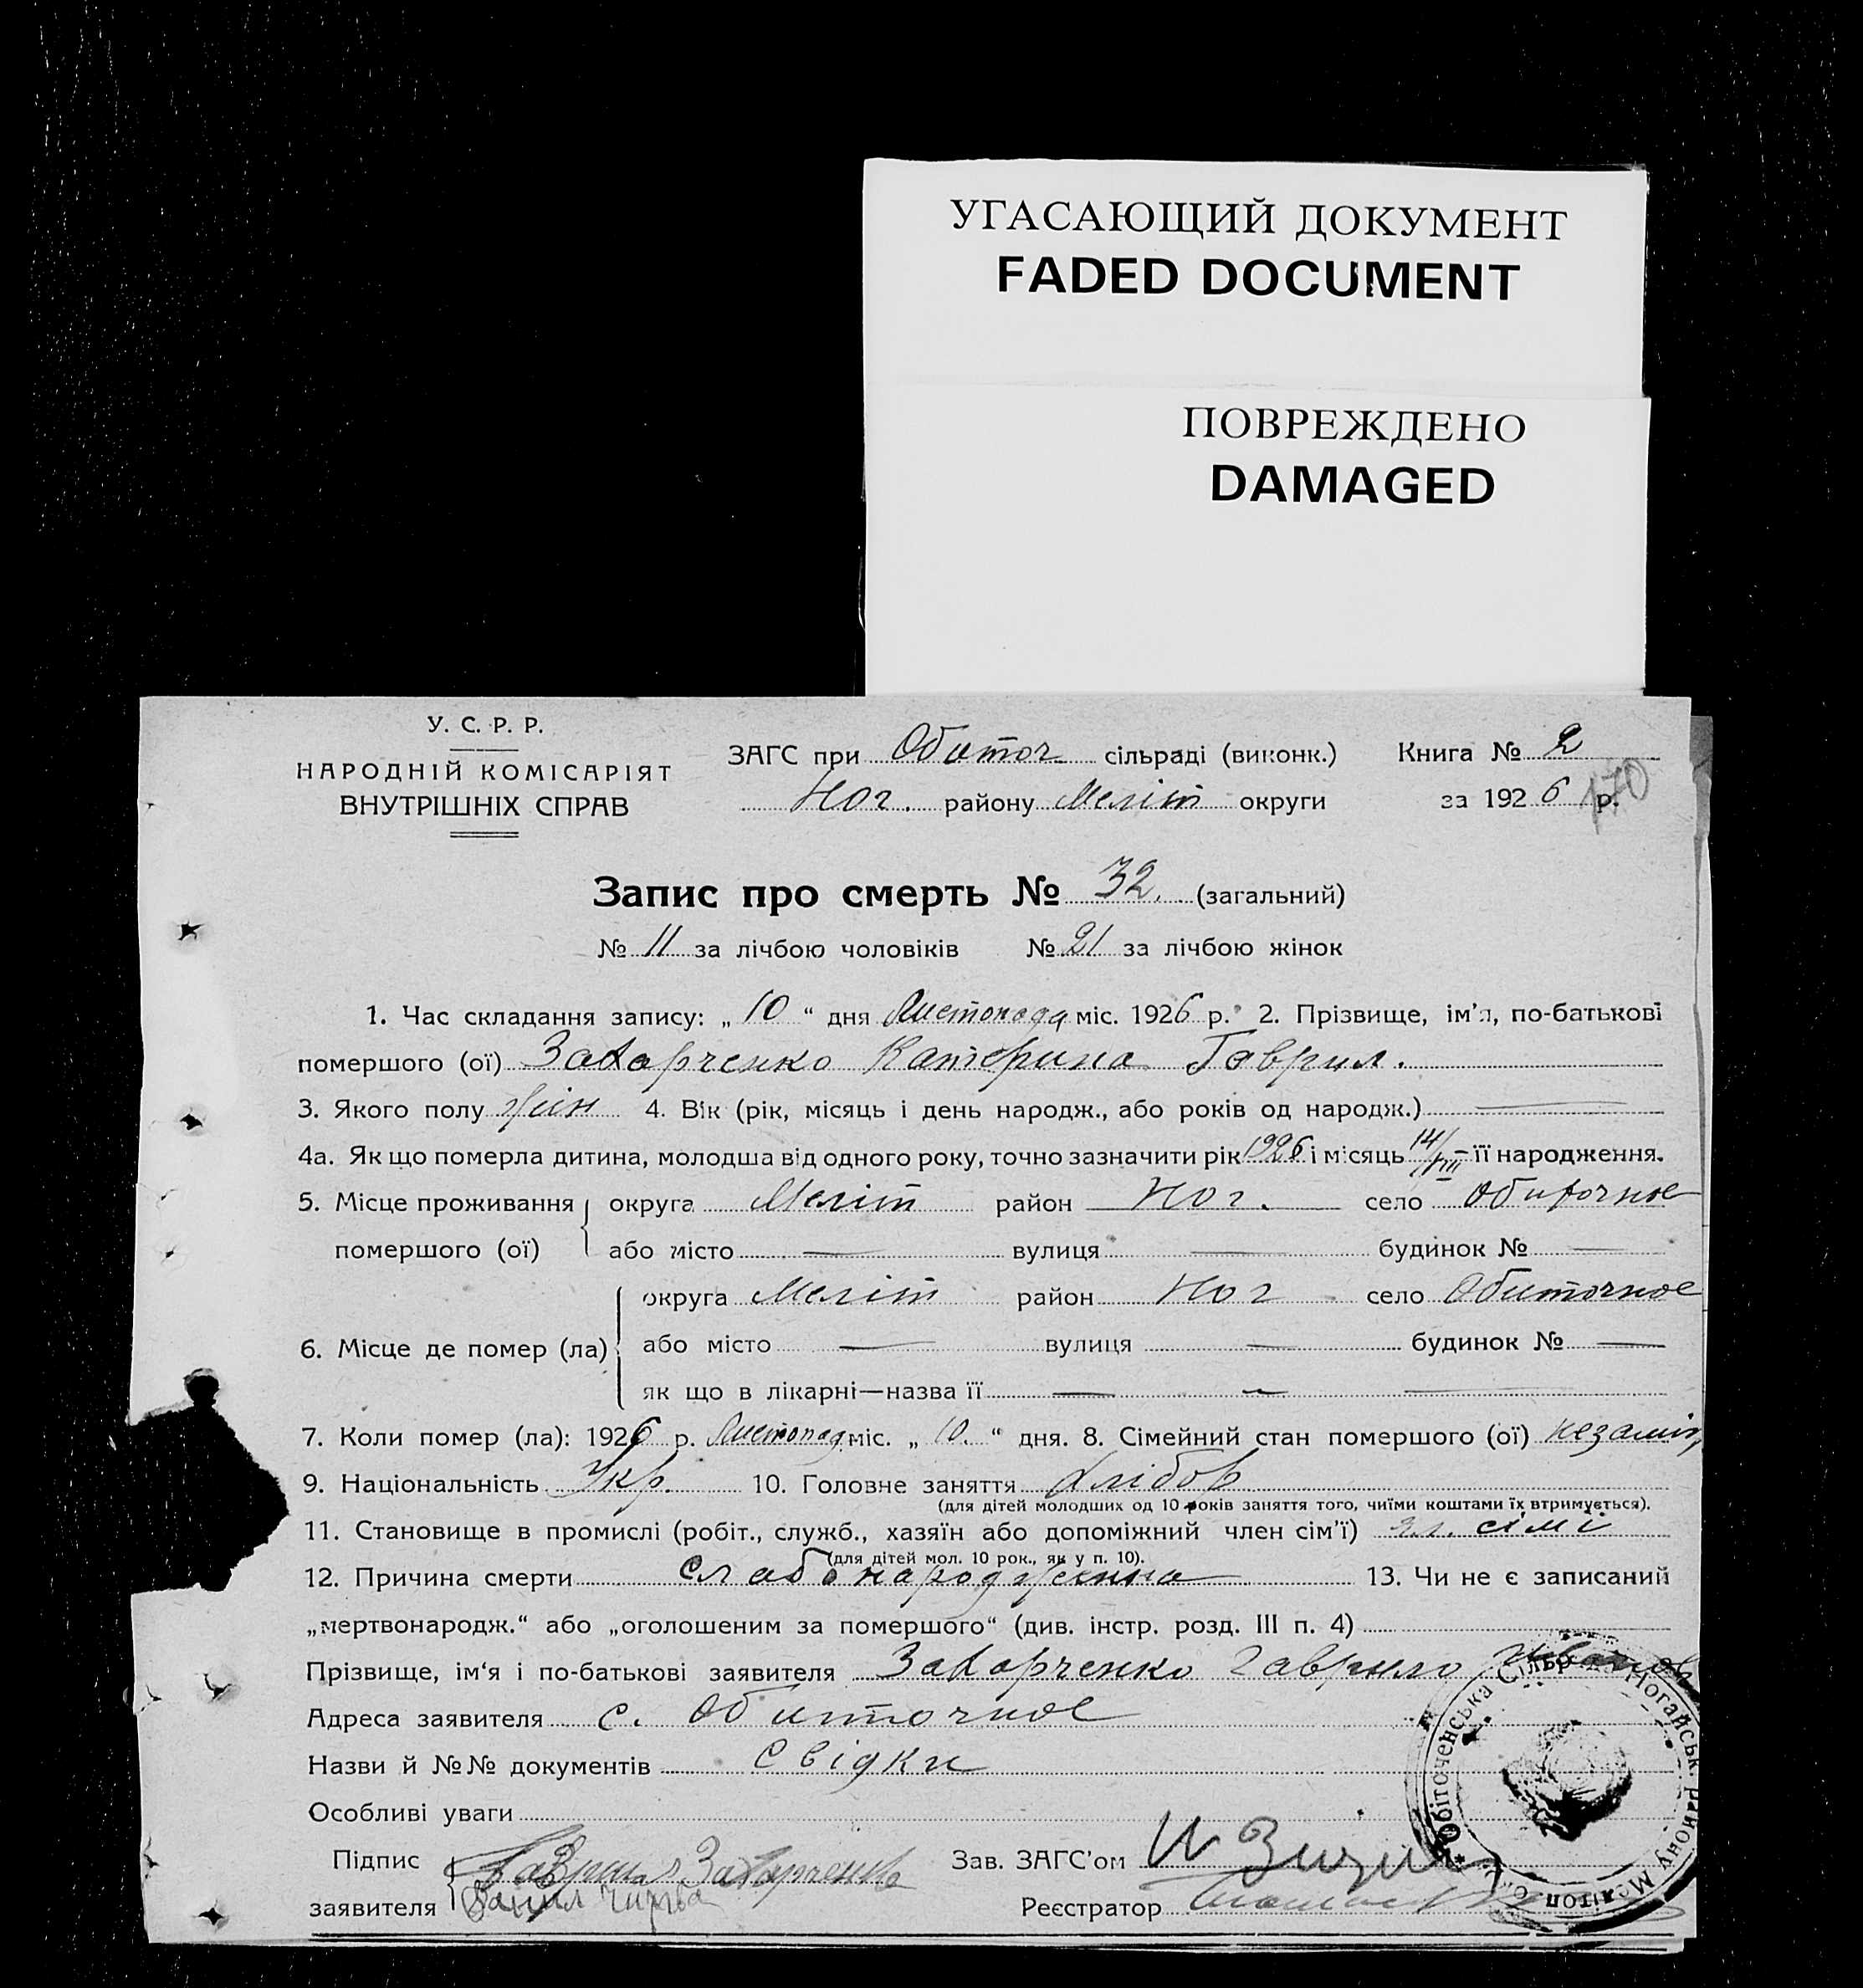 УГАСАЮЩИЙ ДОКУМЕНТ
FADED DOCUMENT
ПОВРЕЖДЕНО
DAMAGED
У. С. Р. Р.
НАРОДНІЙ КОМІСАРІЯТ
ВНУТРІШНІХ СПРАВ
ЗАГС при Обиточ сільраді (виконк.) Книга № 2
Ног. району Меліт округи за 1926 р.
170
Запис про смерть № 32. (загальний)
№ 11 за лічбою чоловіків № 21 за лічбою жінок
1. Час складання запису: „ 10 “ дня Листопада міс. 1926 р. 2. Прізвище, ім'я, по-батькові
помершого (ої) Захарченко Катерина Гаврил.
3. Якого полу жін 4. Вік (рік, місяць і день народж., або років од народж.) —
4а. Як що померла дитина, молодша від одного року, точно зазначити рік 1926 і місяць 14/VIII – її народження.
5. Місце проживання помершого (ої) округа Меліт район Ног. село Обиточное
або місто — вулиця — будинок № —
6. Місце де помер (ла) округа Меліт район Ног село Обиточное
або місто — вулиця — будинок № —
як що в лікарні—назва її — — —
7. Коли помер (ла): 1926 р. Листопад міс. „ 10. “ дня. 8. Сімейний стан помершого (ої) незамін
9. Національність Укр. 10. Головне заняття хлібор
(для дітей молодших од 10 років заняття того, чиїми коштами їх втримується).
11. Становище в промислі (робіт., служб., хазяїн або допоміжний член сім'ї) чл. сімі
(для дітей мол. 10 рок., як у п. 10).
12. Причина смерти слабонародженна 13. Чи не є записаний
„мертвонародж.“ або „оголошеним за помершого“ (див. інстр. розд. III п. 4)
Прізвище, ім'я і по-батькові заявителя Захарченко Гаврило Иванов
Адреса заявителя с. Обиточное
Назви й №№ документів Свідки
Особливі уваги
Підпис заявителя Гаврил Захарченко
Данил Чирва
Зав. ЗАГС'ом
Реєстратор
Обіточенська Сільрада Ногайськ. Району Мелітоп. Окр.